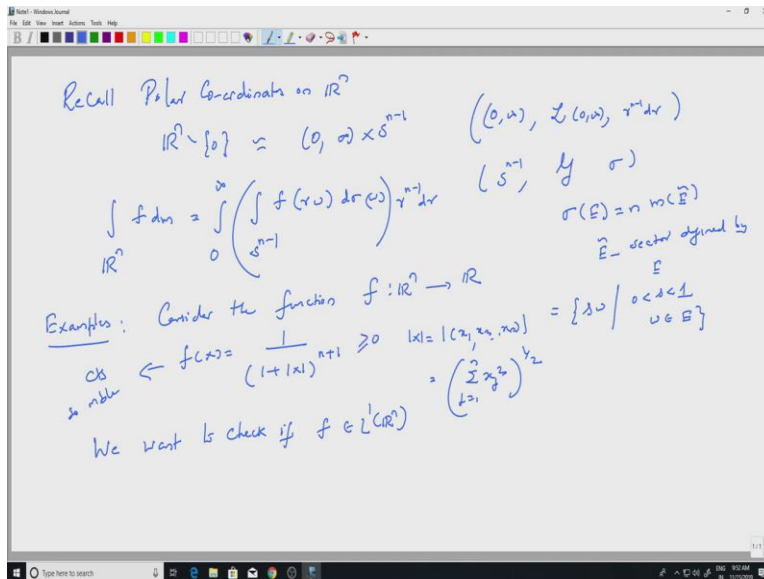 Note1 - Windows Journal
File Edit View Insert Actions Tools Help
Recall Polar Co-ordinates on ℝⁿ
ℝⁿ \ {0} ≈ (0, ∞) × Sⁿ⁻¹
((0,∞), ℒ(0,∞), rⁿ⁻¹dr)
(Sⁿ⁻¹, 𝒮, σ)
∫_{ℝⁿ} f dm = ∫₀^∞ ( ∫_{Sⁿ⁻¹} f(rω) dσ(ω) ) rⁿ⁻¹ dr
σ(E) = n m(Ẽ)
Ẽ – sector defined by
E
= {sω | 0<s<1
ω ∈ E}
Examples: Consider the function f : ℝⁿ → ℝ
cts ← f(x) = 1/(1+|x|)ⁿ⁺¹ ≥ 0 |x| = |(x₁, x₂..xₙ)|
so mble
= (∑_{j=1}^{n} xⱼ²)^{1/2}
We want to check if f ∈ L¹(ℝⁿ)
1/1
Type here to search
ENG 9:52 AM
IN 11/15/2019